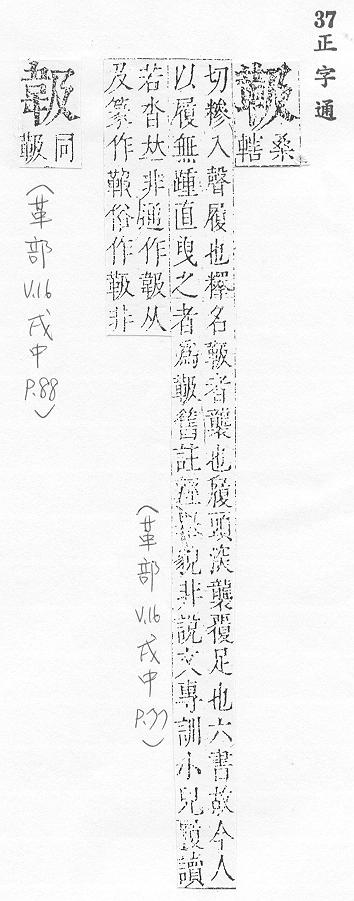 37正字通
靸
桑轄
切糝入聲履也釋名靸者襲也履頭深襲覆足也六書故今人
以履無踵直曳之者爲靸舊註輕舉貌非說文專訓小兒履讀
若沓𠀤非通作靸从
及篆作靸俗作靸非
(革部 V.16 戌中 P.77)
同靸
(革部 V.16 戌中 P.88)